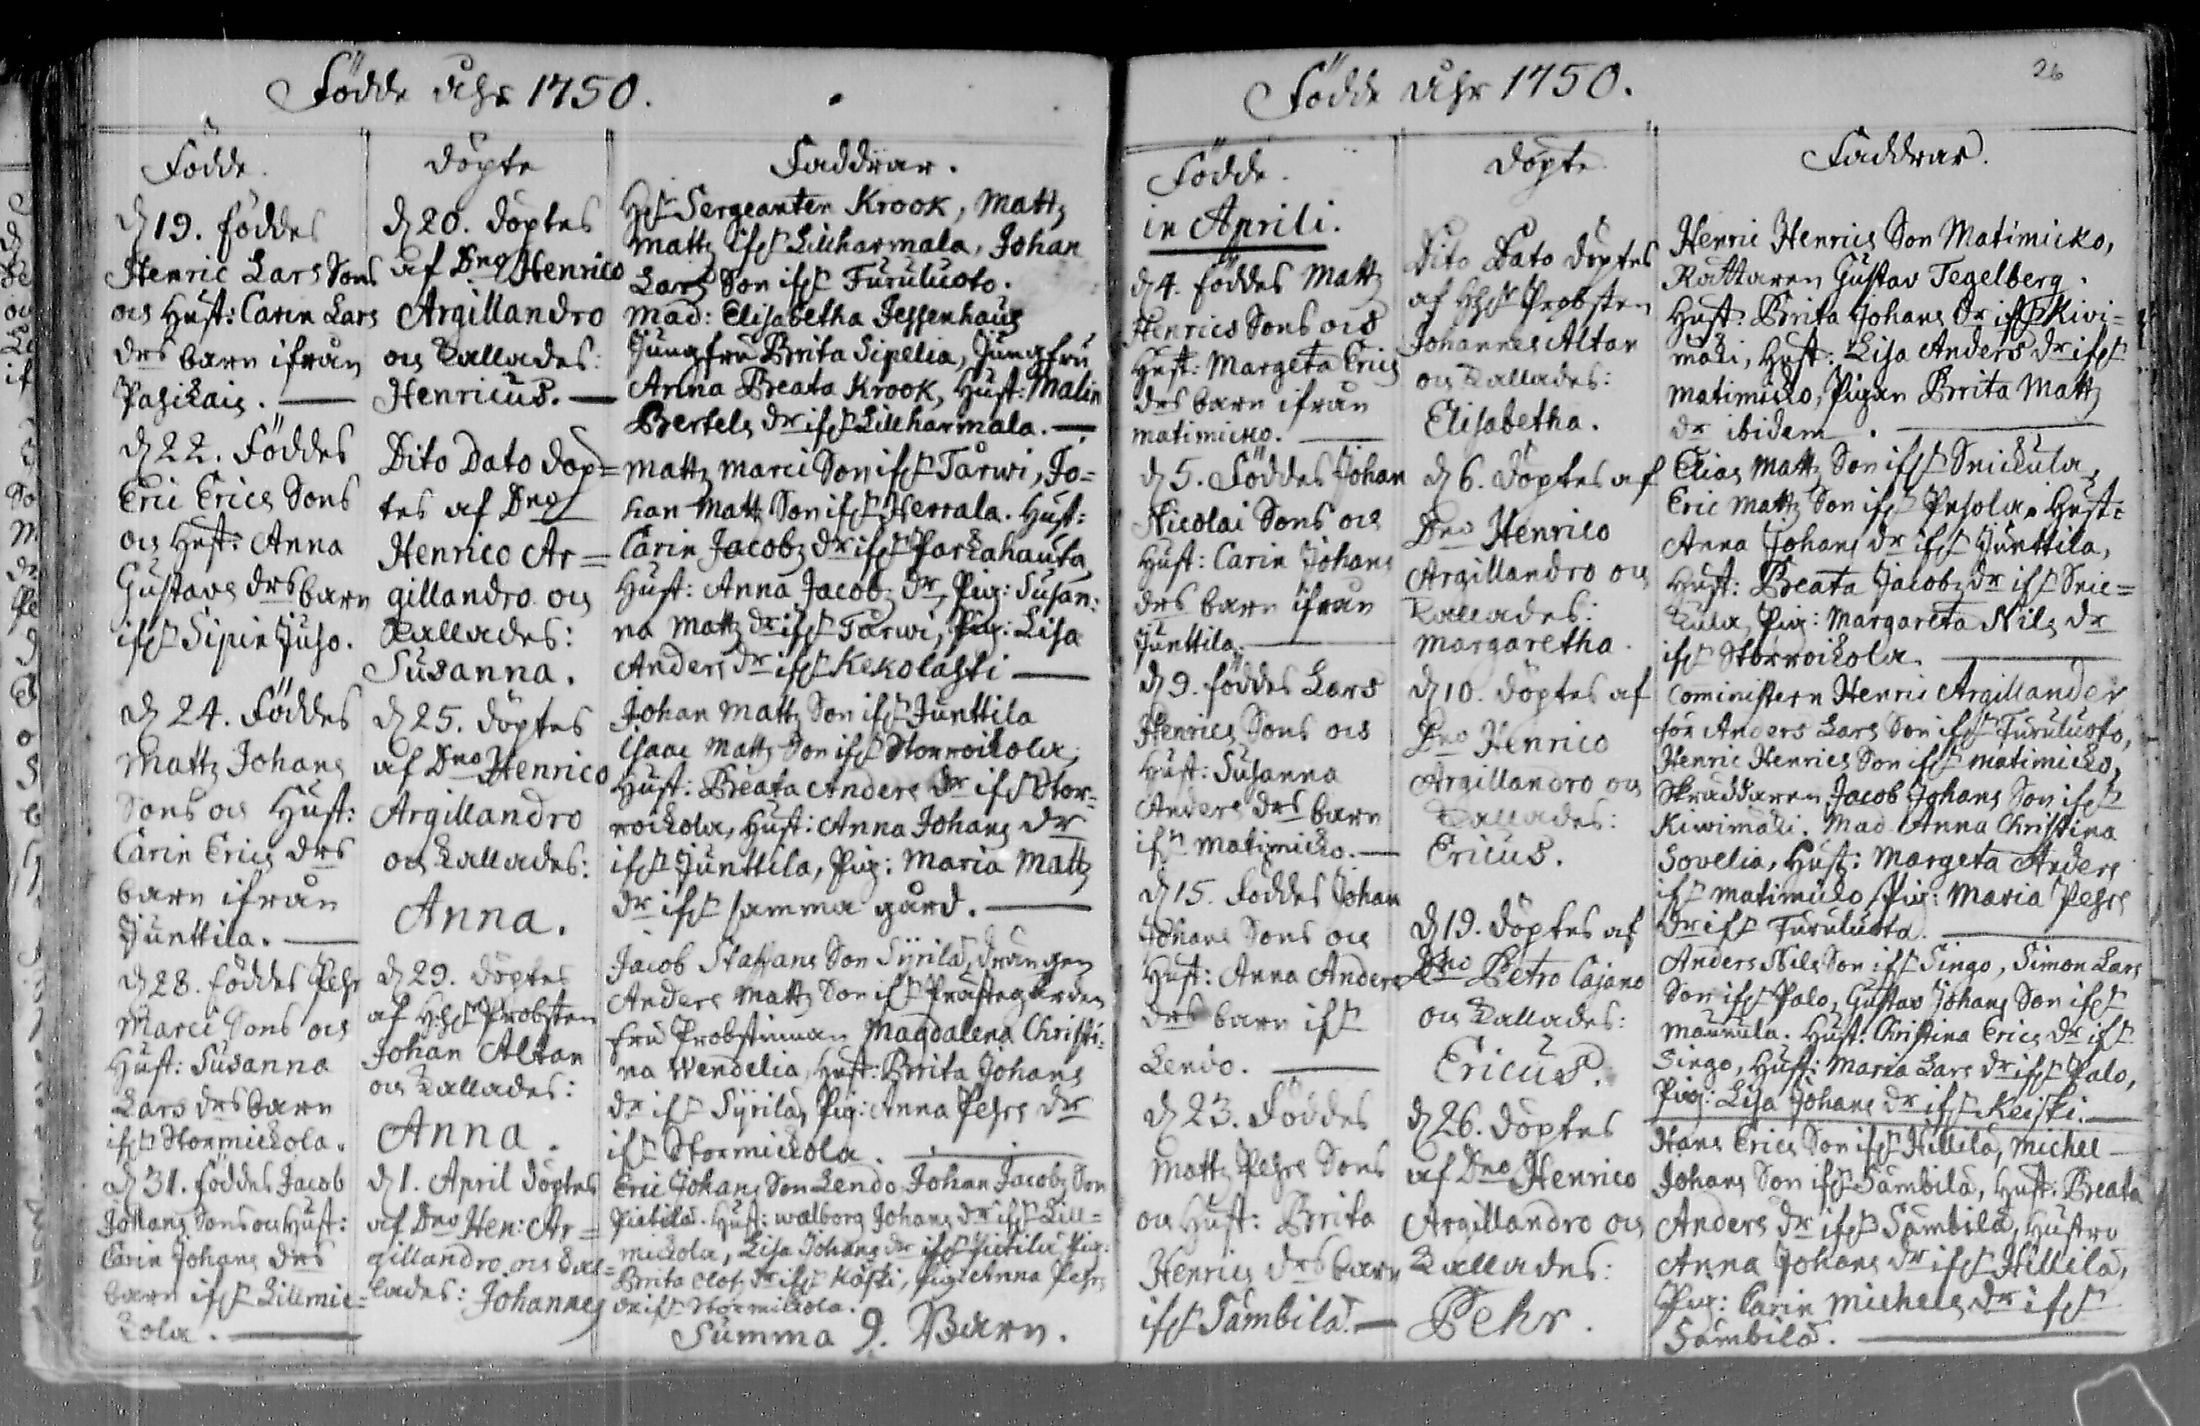 Födde Åhr 1750.
Födde.
d 19. föddes
Henric Lars Sons
och Hust: Carin Lars
drs barn ifrån
Pasikais.
d 22. Föddes
Eric Erics Sons
och Hust: Anna
Gustavs drs barn
ifr Sipin Juso.
d 24. Föddes
Mattz Johans
Sons och Hust:
Carin Erics drs
barn ifrån
Junttila.
d 28. föddes Pehr
Marci Sons och
Hust: Susanna
Lars drs barn
ifr Stormickola.
d 31. föddes Jacob
Johans Sons och Hust:
Carin Johans drs
barn ifr Lillmic=
kola.
döpte
d 20. döptes
af Dno Henrico
Argillandro
och kallades:
Henricus.
Dito Dato döp=
tes af Dno
Henrico Ar=
gillandro och
kallades:
Susanna.
d 25. döptes
af Dno Henrico
Argillandro
och kallades:
Anna.
d 29. döptes
af H:hr Probsten
Johan Altan
och kallades:
Anna.
d 1. April döptes
af Dno Hen: Ar=
gillandro och kal=
lades: Johannes
Faddrar.
Hr Sergeanten Krook, Mattz
Mattz ifr Lillharmala, Johan
Lars Son ifr Furuluoto.
Mad: Elisabetha Jessenhaus
Jungfru Brita Sipelia, Jungfru
Anna Beata Krook, Hust: Malin
Bertels dr ifr Lillharmala.
Mattz Marci Son ifr Tårwi, Jo=
han Matts Son ifr Herrala. Hust:
Carin Jacobz dr ifr Parkahauta,
Hust: Anna Jacobz dr, Pig: Susan:
na Mattz dr ifr Tårwi, Pig: Lisa
Anders dr ifr Kekolahti
Johan Mattz Son ifr Junttila
Isaac Matts Son ifr Storroikola,
Hust: Beata Anders dr ifr Stor=
roikola, Hust: Anna Johans dr
ifr Junttila, Pig: Maria Mattz
dr ifr samma gård.
Jacob Staffans Son Syrilä, drängen
Anders Mattz Son ifr Prästegården
fru Probstinnan Magdalena Christi:
na Wendelia, Hust: Brita Johans
dr ifr Syrilä, Pig: Anna Pehrs dr
ifr Stormickola.
Eric Johans Son Lendo, Johan Jacobz Son
Pietilä. Hust: Walborg Johans dr ifr Lill=
mickola, Lisa Johans dr ifr Pietilä, Pig:
Brita Olofs dr ifr Köski, Pig: Anna Pehrs
dr ifr Stormickola.
Summa 9. Barn.
Födde Åhr 1750.
26
Födde.
in Aprili.
d 4. föddes Mattz
Henrics Sons och
Hust: Margeta Erics
drs barn ifrån
Matimicko.
d 5. Föddes Johan
Nicolai Sons och
Hust: Carin Johans
drs barn ifrån
Junttila.
d 9. föddes Lars
Henrics Sons och
Hust: Susanna
Anders drs barn
ifr Matimicko.
d 15. Föddes Johan
Johans Sons och
Hust: Anna Anders
drs barn ifr
Lendo.
d 23. Föddes
Mattz Pehrs Sons
och Hust: Brita
Henrics drs barn
ifr Sämbilä.
döpte.
Dito Dato döptes
af H:hr Probsten
Johannes Altan
och kallades:
Elisabetha.
d 6. döptes af
Dno Henrico
Argillandro och
kallades:
Margaretha.
d 10. döptes af
Dno Henrico
Argillandro och
kallades:
Ericus.
d 19. döptes af
Dno Petro Cajano
och kallades:
Ericus.
d 26. döptes
af Dno Henrico
Argillandro och
kallades:
Pehr.
Faddrar.
Henric Henrics Son Matimicko,
Rättaren Gustav Tegelberg.
Hust: Brita Johans dr ifr Kivi=
mäki, Hust: Lisa Anders dr ifr
Matimicko, Pigan Brita Mattz
dr ibidem.
Elias Mattz Son ifr Snickula,
Eric Mattz Son ifr Pesola. Hust:
Anna Johans dr ifr Junttila,
Hust: Beata Jacobz dr ifr Snic=
kula, Pig: Margareta Nils dr
ifr Storroikola.
Cominstern Henric Argillander
för Anders Lars Son ifr Furuluoto,
Henric Henrics Son ifr Matimicko,
Skräddaren Jacob Johans Son ifr
Kiwimäki. Mad. Anna Christina
Sovelia, Hust: Margeta Anders
ifr Matimicko, Pig: Maria Pehrs
dr ifr Furuluota.
Anders Nils Son ifr Singo, Simon Lars
Son ifr Palo, Gustav Johans Son ifr
Maunula. Hust: Christina Erics dr ifr
Singo, Hust: Maria Lars dr ifr Palo,
Pig: Lisa Johans dr ifr Keiski.
Hans Erics Son ifr Hillilä, Michel
Johans Son ifr Sämbilä, Hust: Beata
Anders dr ifr Sämbilä, Hustro
Anna Johans dr ifr Hillilä,
Pig: Carin Michels dr ifr
Sämbilä.